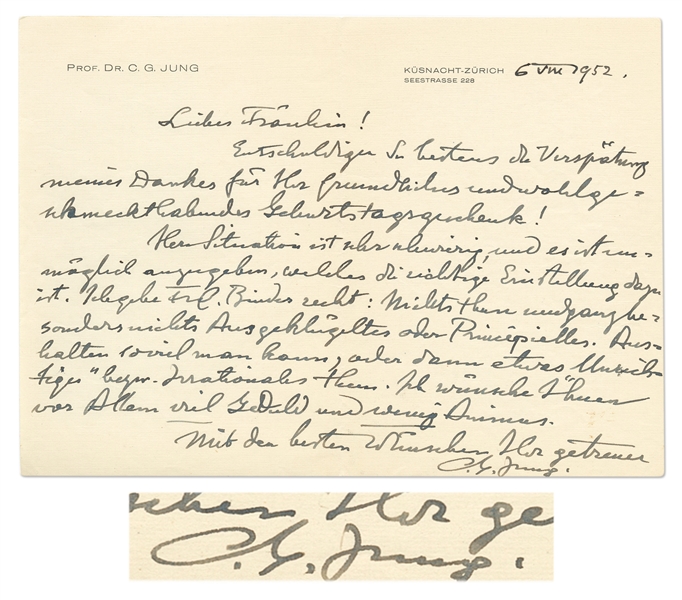 PROF. DR. C. G. JUNG
KÜSNACHT-ZÜRICH 6 VIII 1952.
SEESTRASSE 228
Liebes Fräulein!
Entschuldigen Sie bestens die Verspätung
meines Dankes für Ihr freundliches und wohlge=
schmeckt habendes Geburtstagsgeschenk!
Ihre Situation ist sehr schwierig, und es ist un=
möglich anzugeben, welches die richtige Einstellung dazu
ist. Ich gebe Frl. Binder recht: Nichts thun und ganz be=
sonders nichts Ausgeklügeltes oder Principielles. Aus=
halten soviel man kann, oder dann etwas "Unrich=
tiges" bezw. Irrationales thun. Ich wünsche Ihnen
vor Allem viel Geduld und wenig Animus.
Mit den besten Wünschen Ihr getreuer
C. G. Jung.
schen Ihr ge
C. G. Jung.